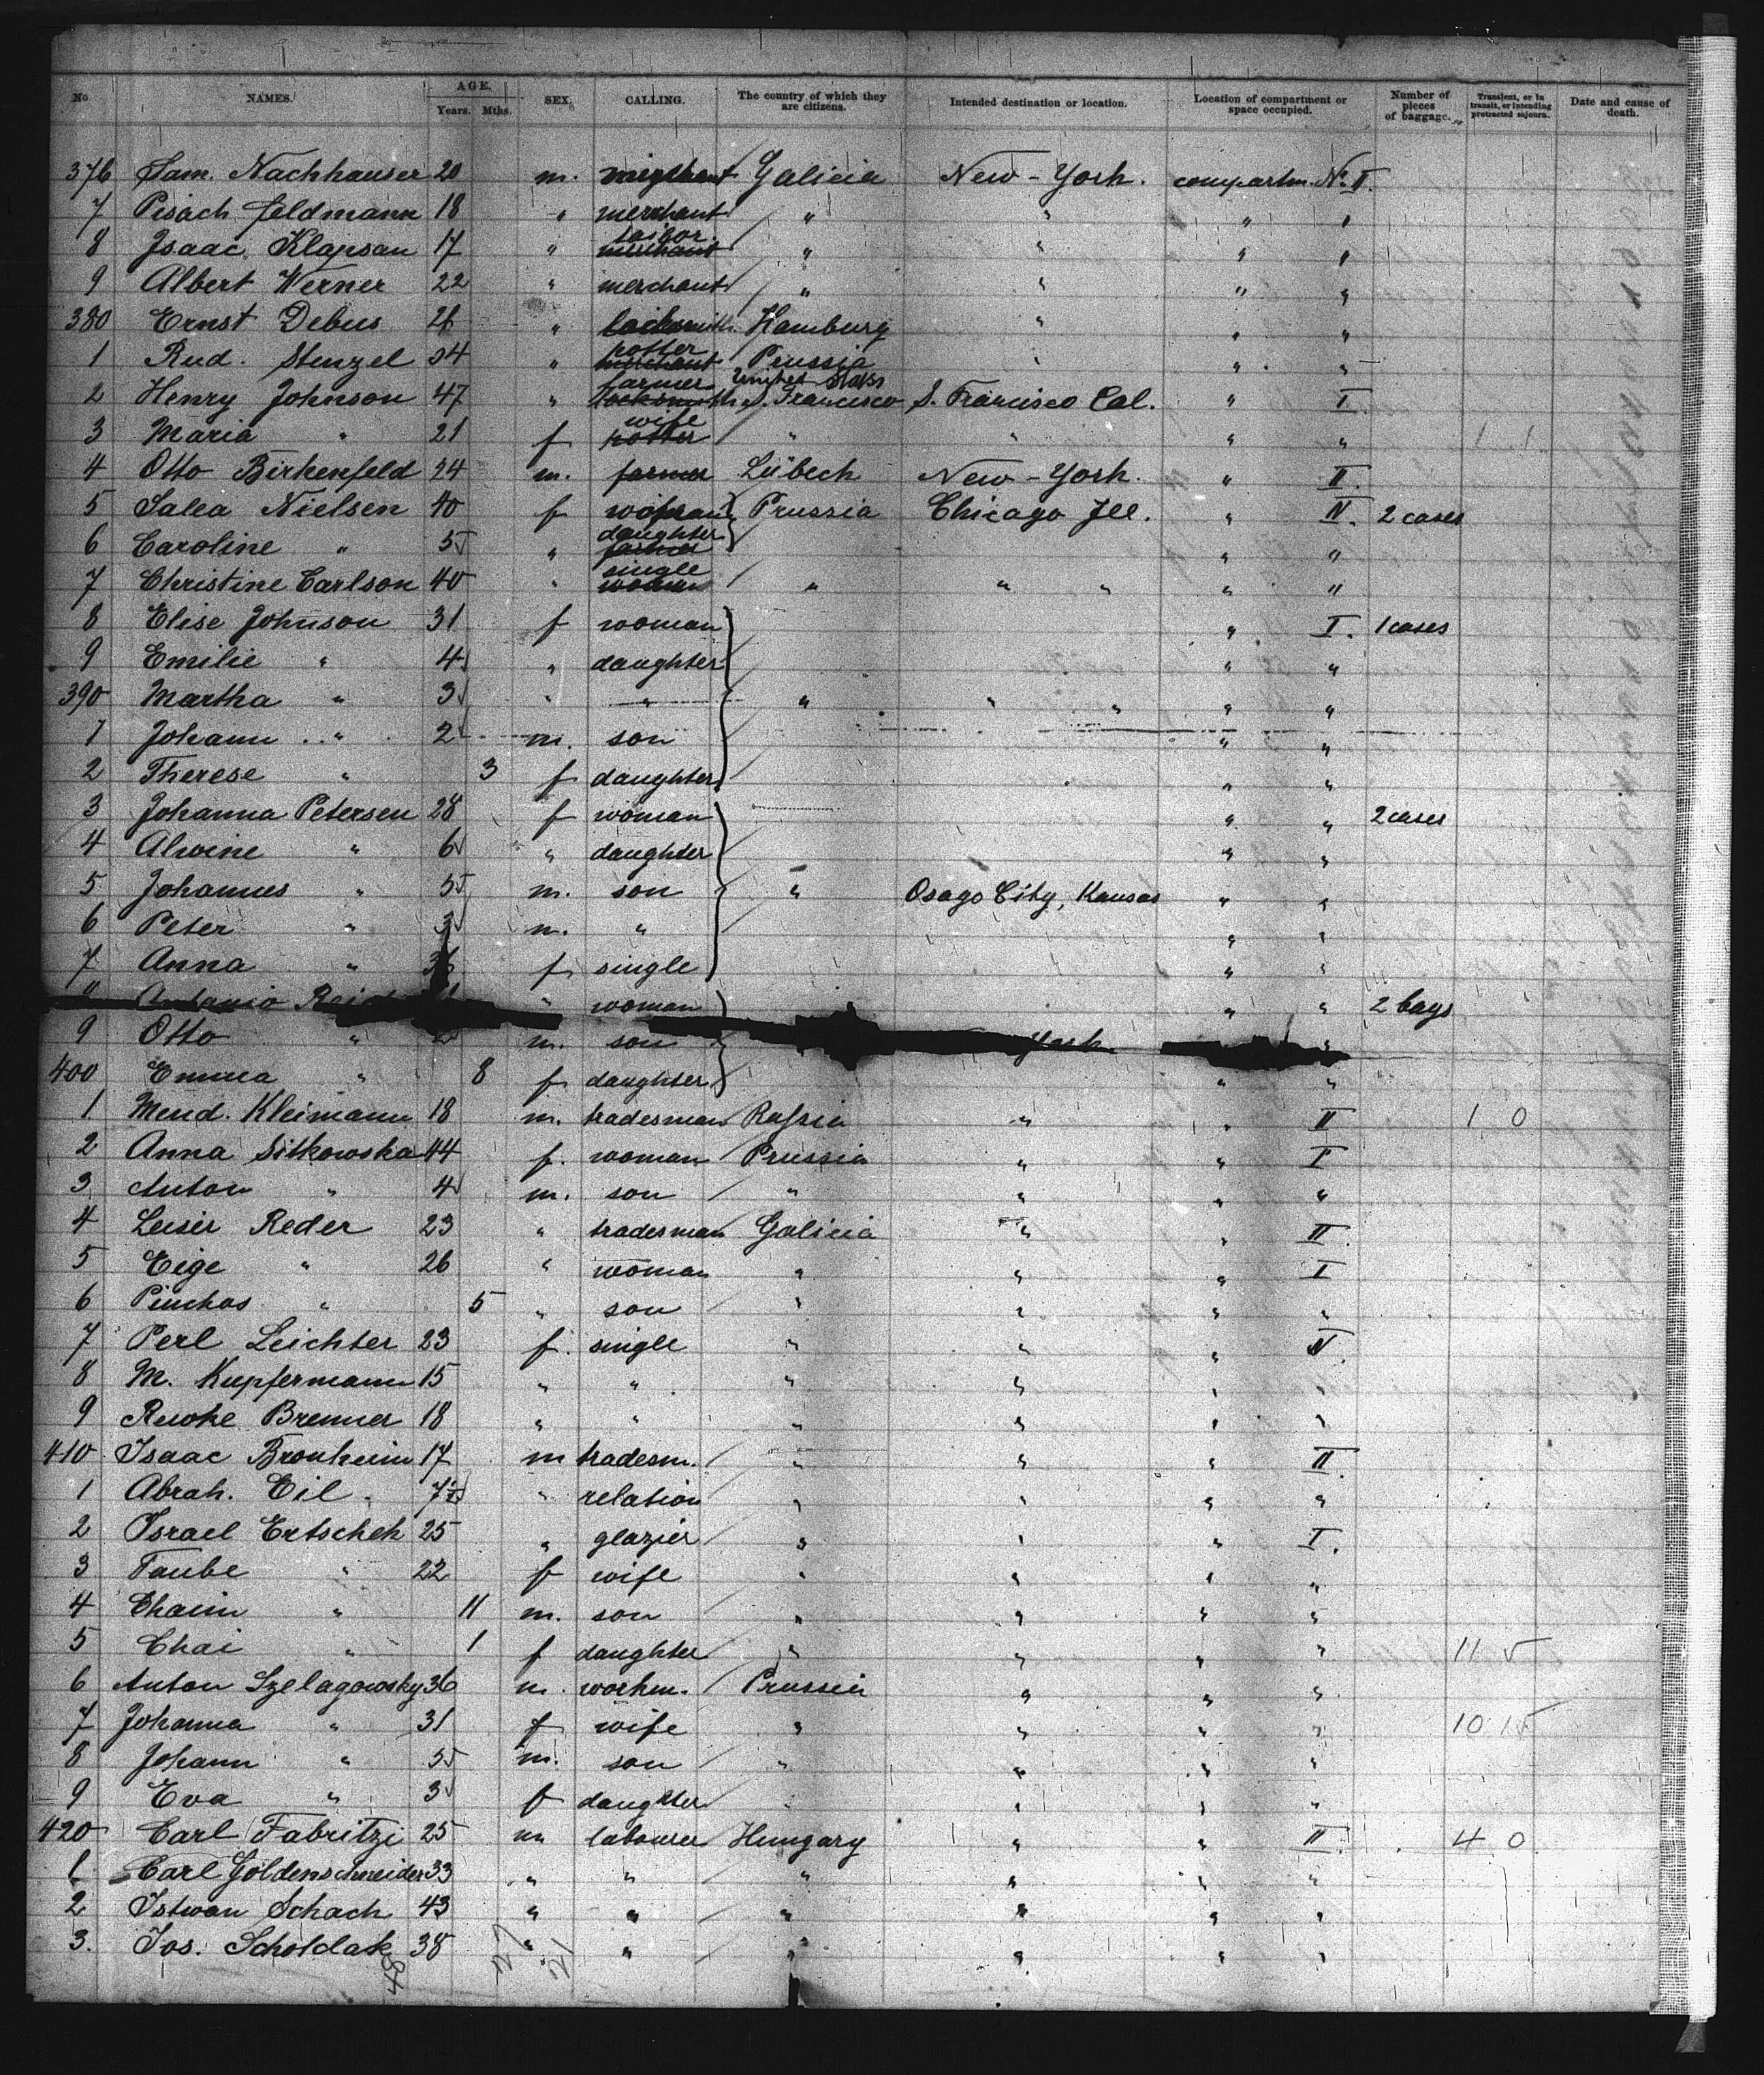 No NAMES. AGE. Years. Mths. SEX. CALLING. The country of which they are citizens. Intended destination or location. Location of compartment or space occupied. Number of pieces of baggage. Transient, or in transit, or intending protracted sojourn. Date and cause of death.
376 Sam. Nachhauser 20 m. merchant Galicia New-York. compartm. No. II.
7 Pisach Feldmann 18 " merchant " " " "
8 Isaac Klapsau 17 " tailor merchant " " " "
9 Albert Werner 22 " merchant " " " "
380 Ernst Debus " locksmith Hamburg " " "
1 Rud. Stenzel 24 " potter merchant Prussia " " "
2 Henry Johnson 47 " farmer locksmith United States S. Francisco S. Francisco Cal. " I.
3 Maria " 21 f wife potter " " " " 1 1
4 Otto Birkenfeld 24 m. farmer Lübeck New-York. " II.
5 Salea Nielsen 40 f woman Prussia Chicago Ill. " IV. 2 cases
6 Caroline " 5 " daughter farmer " "
7 Christine Carlson 40 " single woman " " " " "
8 Elise Johnson 31 f woman " I. 1 cases
9 Emilie " 4 " daughter " "
390 Martha " 3 " " " " " " "
1 Johann " 2 m. son " "
2 Therese " 3 f daughter " "
3 Johanna Petersen 28 f woman " " 2 cases
4 Alwine " 6 " daughter " "
5 Johannes " 5 m. son " Osago City, Kansas " "
6 Peter " 3 m. " " "
7 Anna " f single " "
" woman " " 2 bags
9 Otto " m. son York "
400 Emma " 8 f daughter " "
1 Mend. Kleimann 18 m. tradesman Russia " " II 1 0
2 Anna Sitkowska 44 f. woman Prussia " " I
3 Anton " 4 m. son " " " "
4 Leisir Reder 23 " tradesman Galicia " " II
5 Eige " 26 " woman " " " I
6 Pinchas " 5 " son " " " "
7 Perl Leichter 23 f. single " " " IV.
8 M. Kupfermann 15 " " " " " "
9 Rewke Brenner 18 " " " " " "
410 Isaac Bronheim 17 m tradesm. " " " II
1 Abrah. Eil 7 " relation " " " "
2 Israel Ertschek 25 " glazier " " " I.
3 Taube " 22 f wife " " " "
4 Chaim " 11 m. son " " " "
5 Chai " 1 f daughter " " " " 11 5
6 Anton Szelagowsky 36 m. workm. Prussia " " "
7 Johanna " 31 f wife " " " " 10 15
8 Johann " 5 m. son " " " "
9 Eva " 3 f daughter " " " "
420 Carl Fabritzi 25 m labourer Hungary " " II 4 0
1 Carl Goldenschneider 33 " " " " " "
2 Istwan Schach 43 " " " " " "
3. Jos. Scholdak 38 " " " " " "
48 27 21